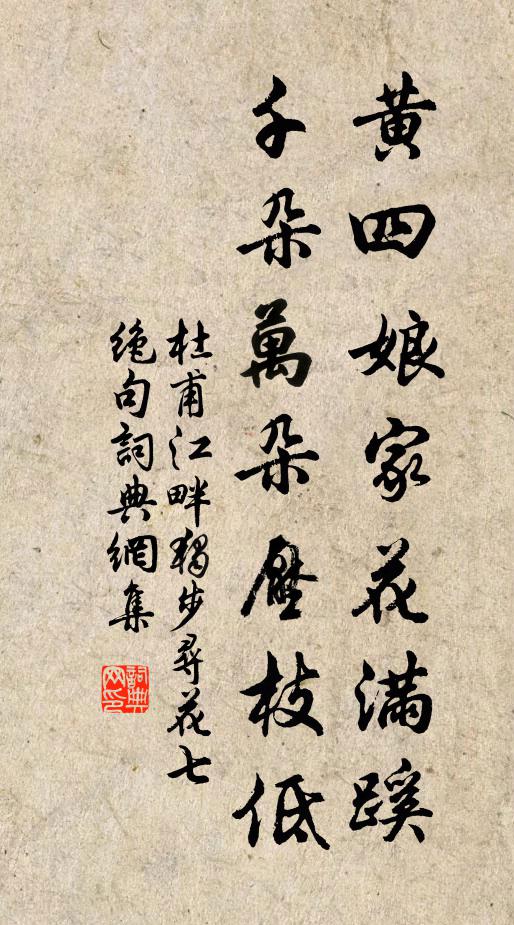 黃四娘家花滿蹊
千朵萬朵壓枝低
杜甫江畔獨步尋花七
絕句詞典網集
詞典
网印